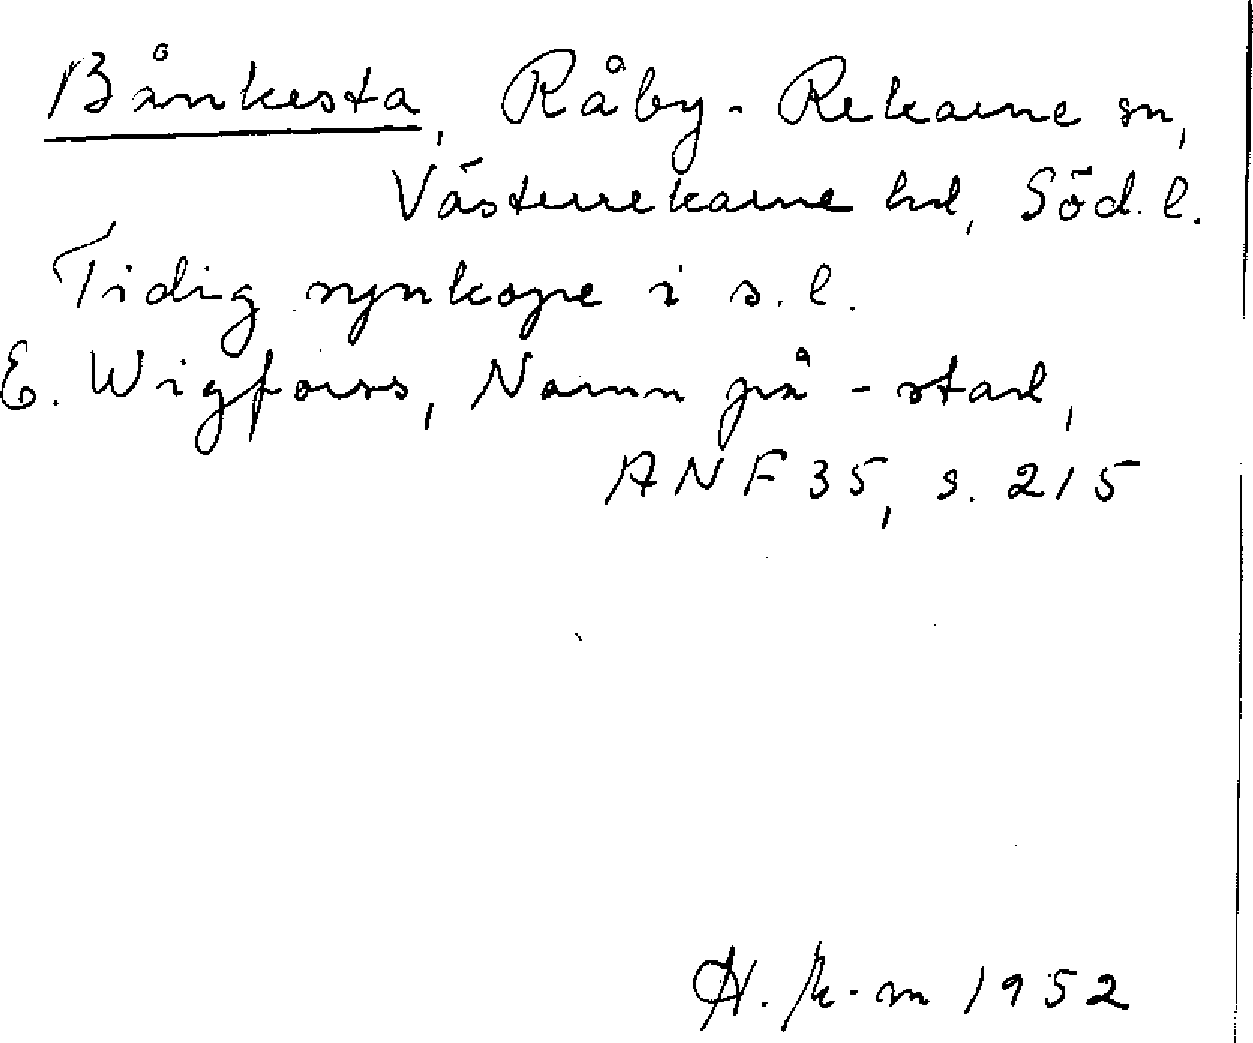 Bånkesta, Råby-Rekarne sn,
Västerrekarne hd, Söd. l.
Tidig synkope i s. l.
E. Wigforss, Namn på -stad,
ANF 35, s. 215
H. K-m 1952